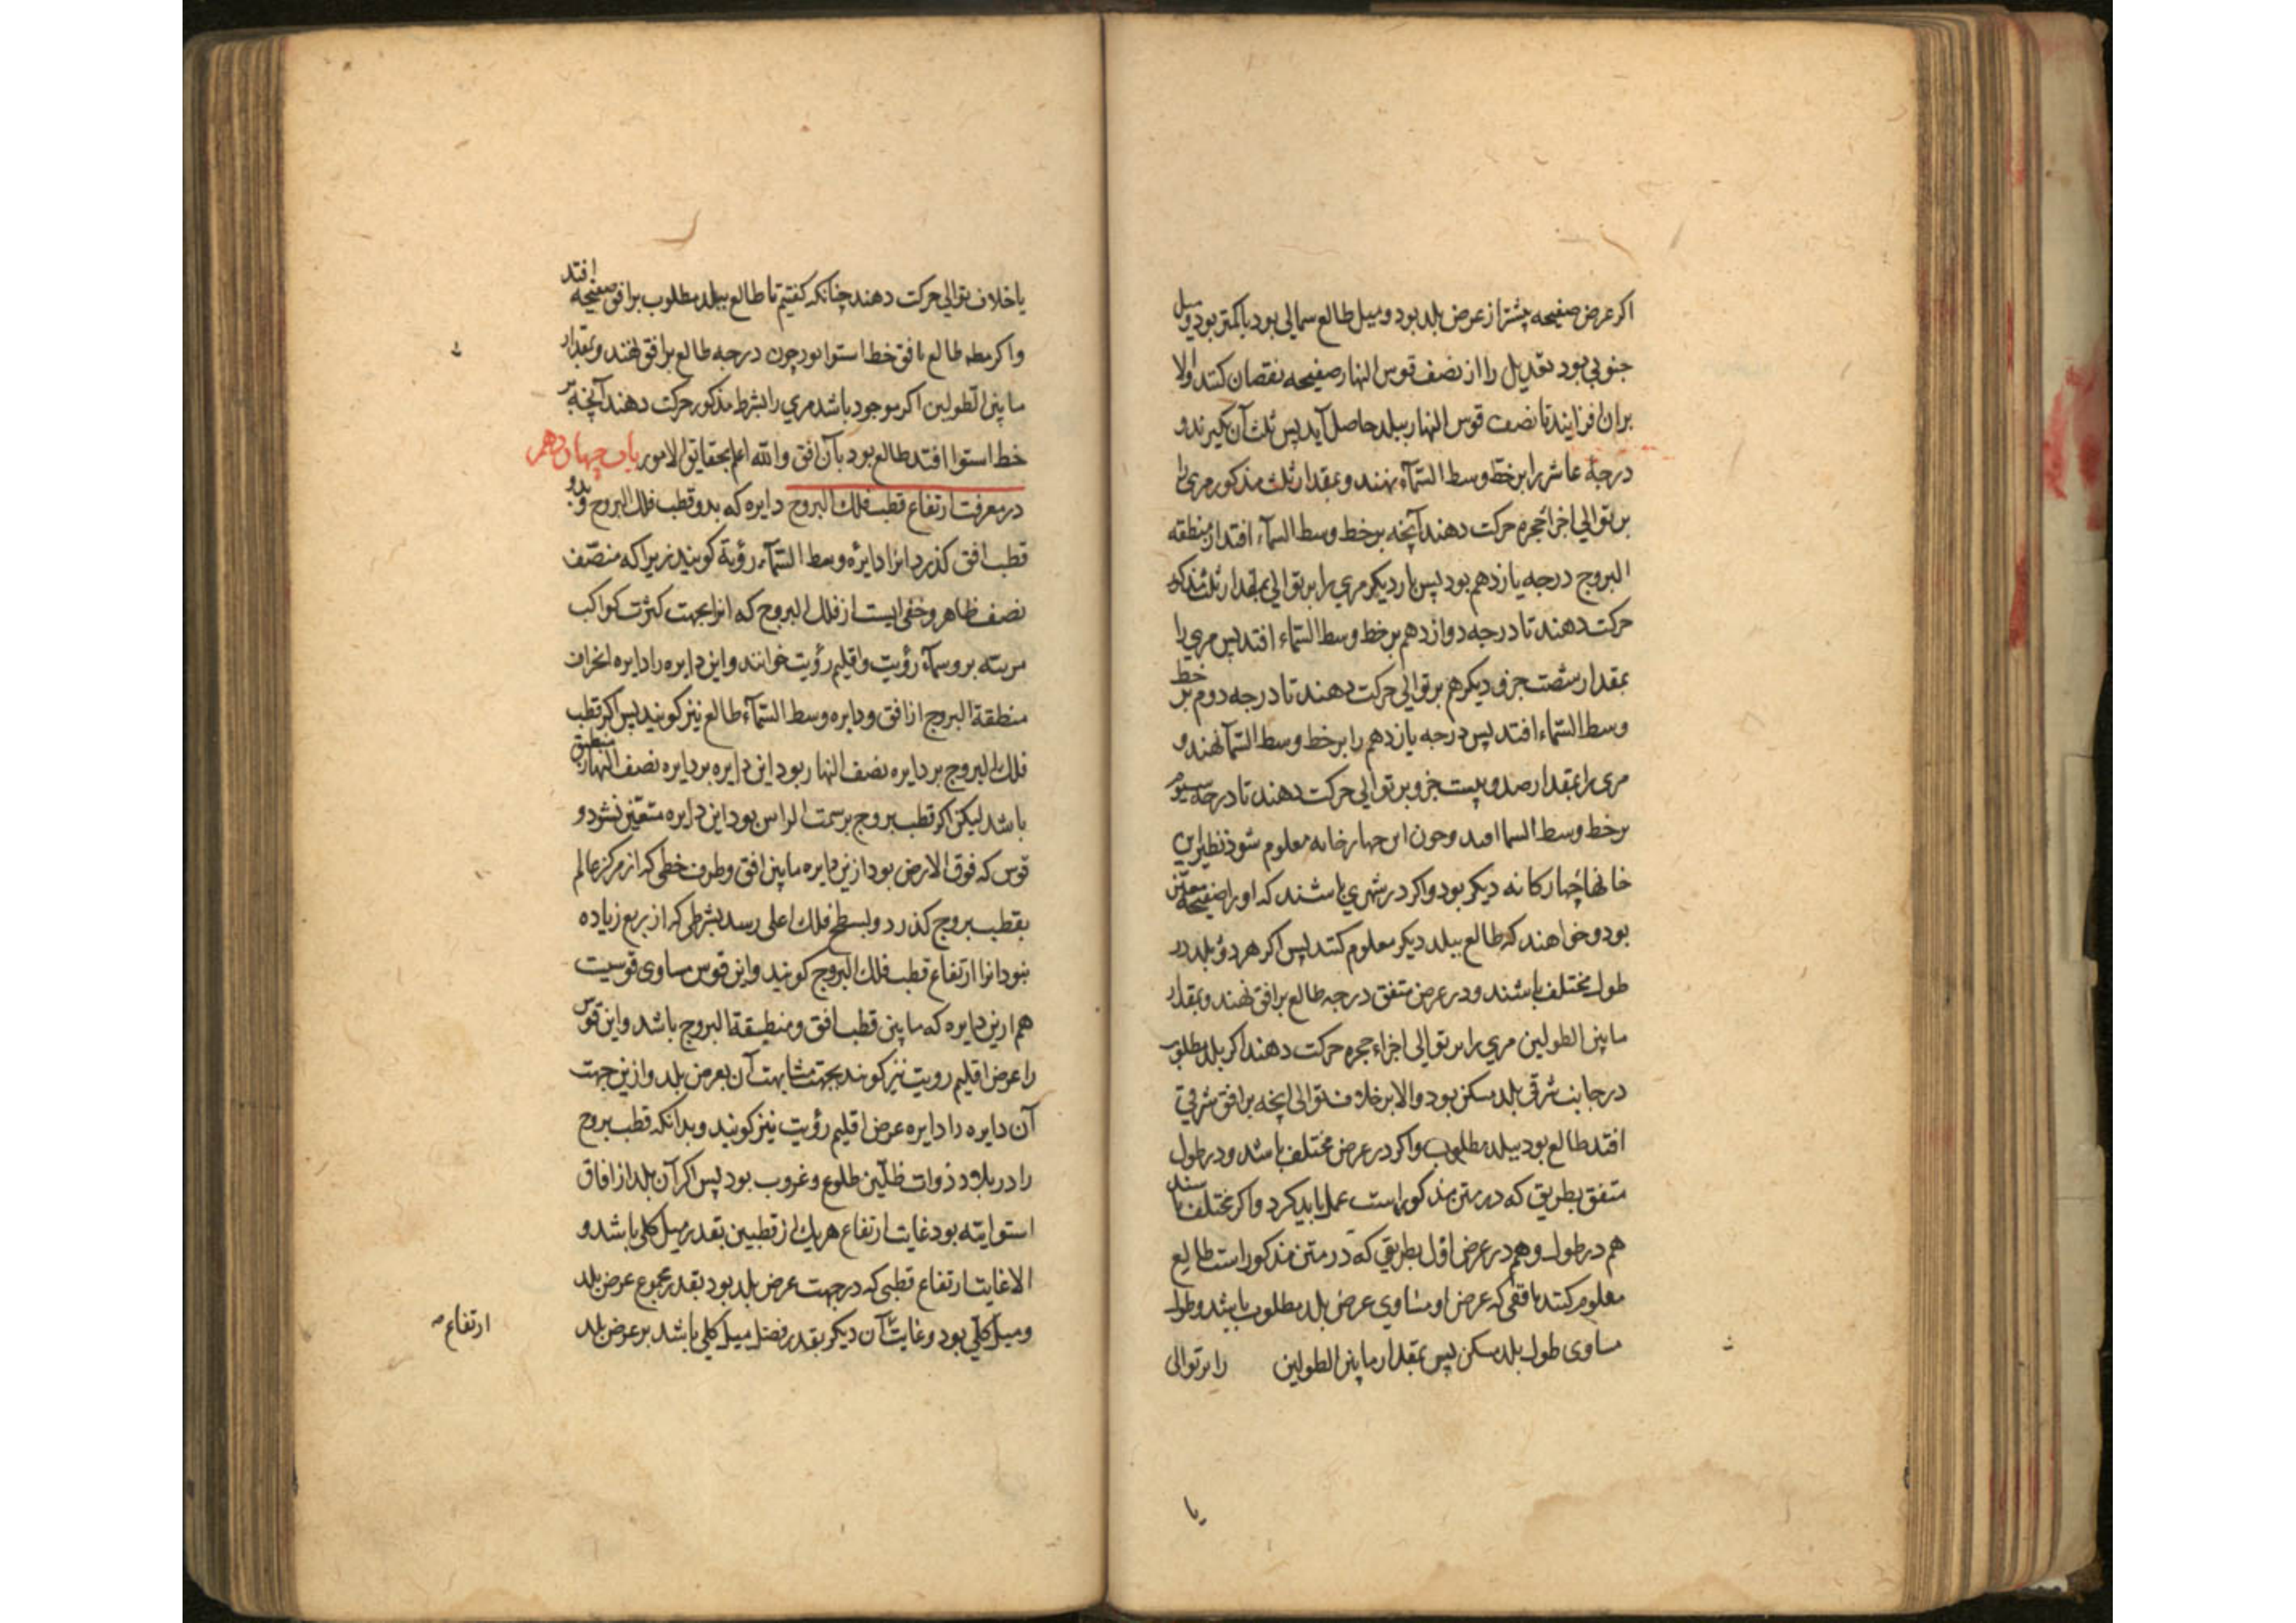 اکر عرض صفیحه بیشتر از عرض بلد بود و میل طالع شمالی بود یا کمتر بود و میل
جنوبی بود تعدیل را از نصف قوس النهار صفیحه نقصان کنند والا
بران افزایند تا نصف قوس النهار ببلد حاصل آید پس ثلث آن بکیرند و
درجه عاشر را بر خط وسط السّمآء نهند و بمقدار ثلث مذکور مری را
بر توالی اجزا حجره حرکت دهند آنچه بر خط وسط السمآء افتد از منطقه
البروج درجه یازدهم بود پس بار دیکر مری را بر توالی بمقدار ثلث مذکور
حرکت دهند تا درجه دوازدهم بر خط وسط السّماء افتد پس مری را
بمقدار شصت جزو دیکر هم بر توالی حرکت دهند تا درجه دوم بر خط
وسط السّماء افتد پس درجه یازدهم را بر خط وسط السّمآ نهند و
مری را بمقدار صد و بیست جزو بر توالی حرکت دهند تا درجه سیوم
بر خط وسط السما افتد و چون این چهار خانه معلوم شود نظیر این
خانها چهار کانه دیکر بود و اکر در شهری باشند که او را صفیحه معیّن
بود و خواهند که طالع ببلد دیکر معلوم کنند پس اکر هر دو بلد در
طول مختلف باشند و در عرض متفق درجه طالع بر افق نهند و بمقدار
ما بین الطولین مری را بر توالی اجزاء حجره حرکت دهند اکر بلد مطلوب
در جانب شرقی بلد مسکن بود والا بر خلاف توالی انچه بر افق شرقی
افتد طالع بود ببلد مطلوب و اکر در عرض مختلف باشد و در طول
متفق بطریق که در متن مذکور است عمل باید کرد و اکر مختلف باشند
هم در طول و هم در عرض اوّل بطریقی که در متن مذکور است طالع
معلوم کنند بافقی که عرض او مساوی عرض بلد مطلوب باشد و طول
مساوی طول بلد مسکن پس بمقدار ما بین الطولین را بر توالی
یا خلاف توالی حرکت دهند چنانکه کفتیم تا طالع ببلد مطلوب بر افق صفیحه افتد
و اکر مطـ طالع بافق خط استوا بود چون درجه طالع بر افق نهند و بمقدار
ما بین الطولین اکر موجود باشد مری را بشرط مذکور حرکت دهند آنچه بر
خط استوا افتد طالع بود بآن افق والله اعلم بحقایق الامور باب چهاردهم
در معرفت ارتفاع قطب فلک البروج دایره که بدو قطب فلک البروج و بدو
قطب افق کذرد انرا دایره وسط السّمآء رؤیة کویند زیرا که منصّف
نصف ظاهر و خفی ایست از فلک البروج که انرا بجهت کثرت کواکب
مریٔه بر و سمآء رؤیت و اقلیم رؤیت خوانند و این دایره را دایره انحراف
منطقة البروج از افق و دایره وسط السّمآء طالع نیز کویند پس اکر قطب
فلک البروج بر دایره نصف النهار بود این دایره بر دایره نصف النهار منطبق
باشد لیکن اکر قطب بروج بر سمت الراس بود این دایره متعیّن نشود و
قوس که فوق الارض بود ازین دایره ما بین افق و طرف خطی که از مرکز عالم
بقطب بروج کذرد و بسطح فلک اعلی رسد بشرطی که از ربع زیاده
نبود انرا ارتفاع قطب فلک البروج کویند و این قوس مساوی قوسیت
هم ازین دایره که ما بین قطب افق و منطقة البروج باشد و این قوس
را عرض اقلیم رویت نیز کویند بجهت مشابهت آن بعرض بلد و ازین جهت
آن دایره را دایره عرض اقلیم رؤیت نیز کویند و بدانکه قطب بروج
را در بلاد ذوات ظلّین طلوع و غروب بود پس اکر آن بلد از افاق
استوایٔه بود غایت ارتفاع هریک از قطبین بقدر میل کلی باشد و
الا غایت ارتفاع قطبی که در جهت عرض بلد بود بقدر مجموع عرض بلد
و میل کلّی بود و غایت آن دیکر بقدر فضل میل کلی باشد بر عرض بلد
ارتفاع